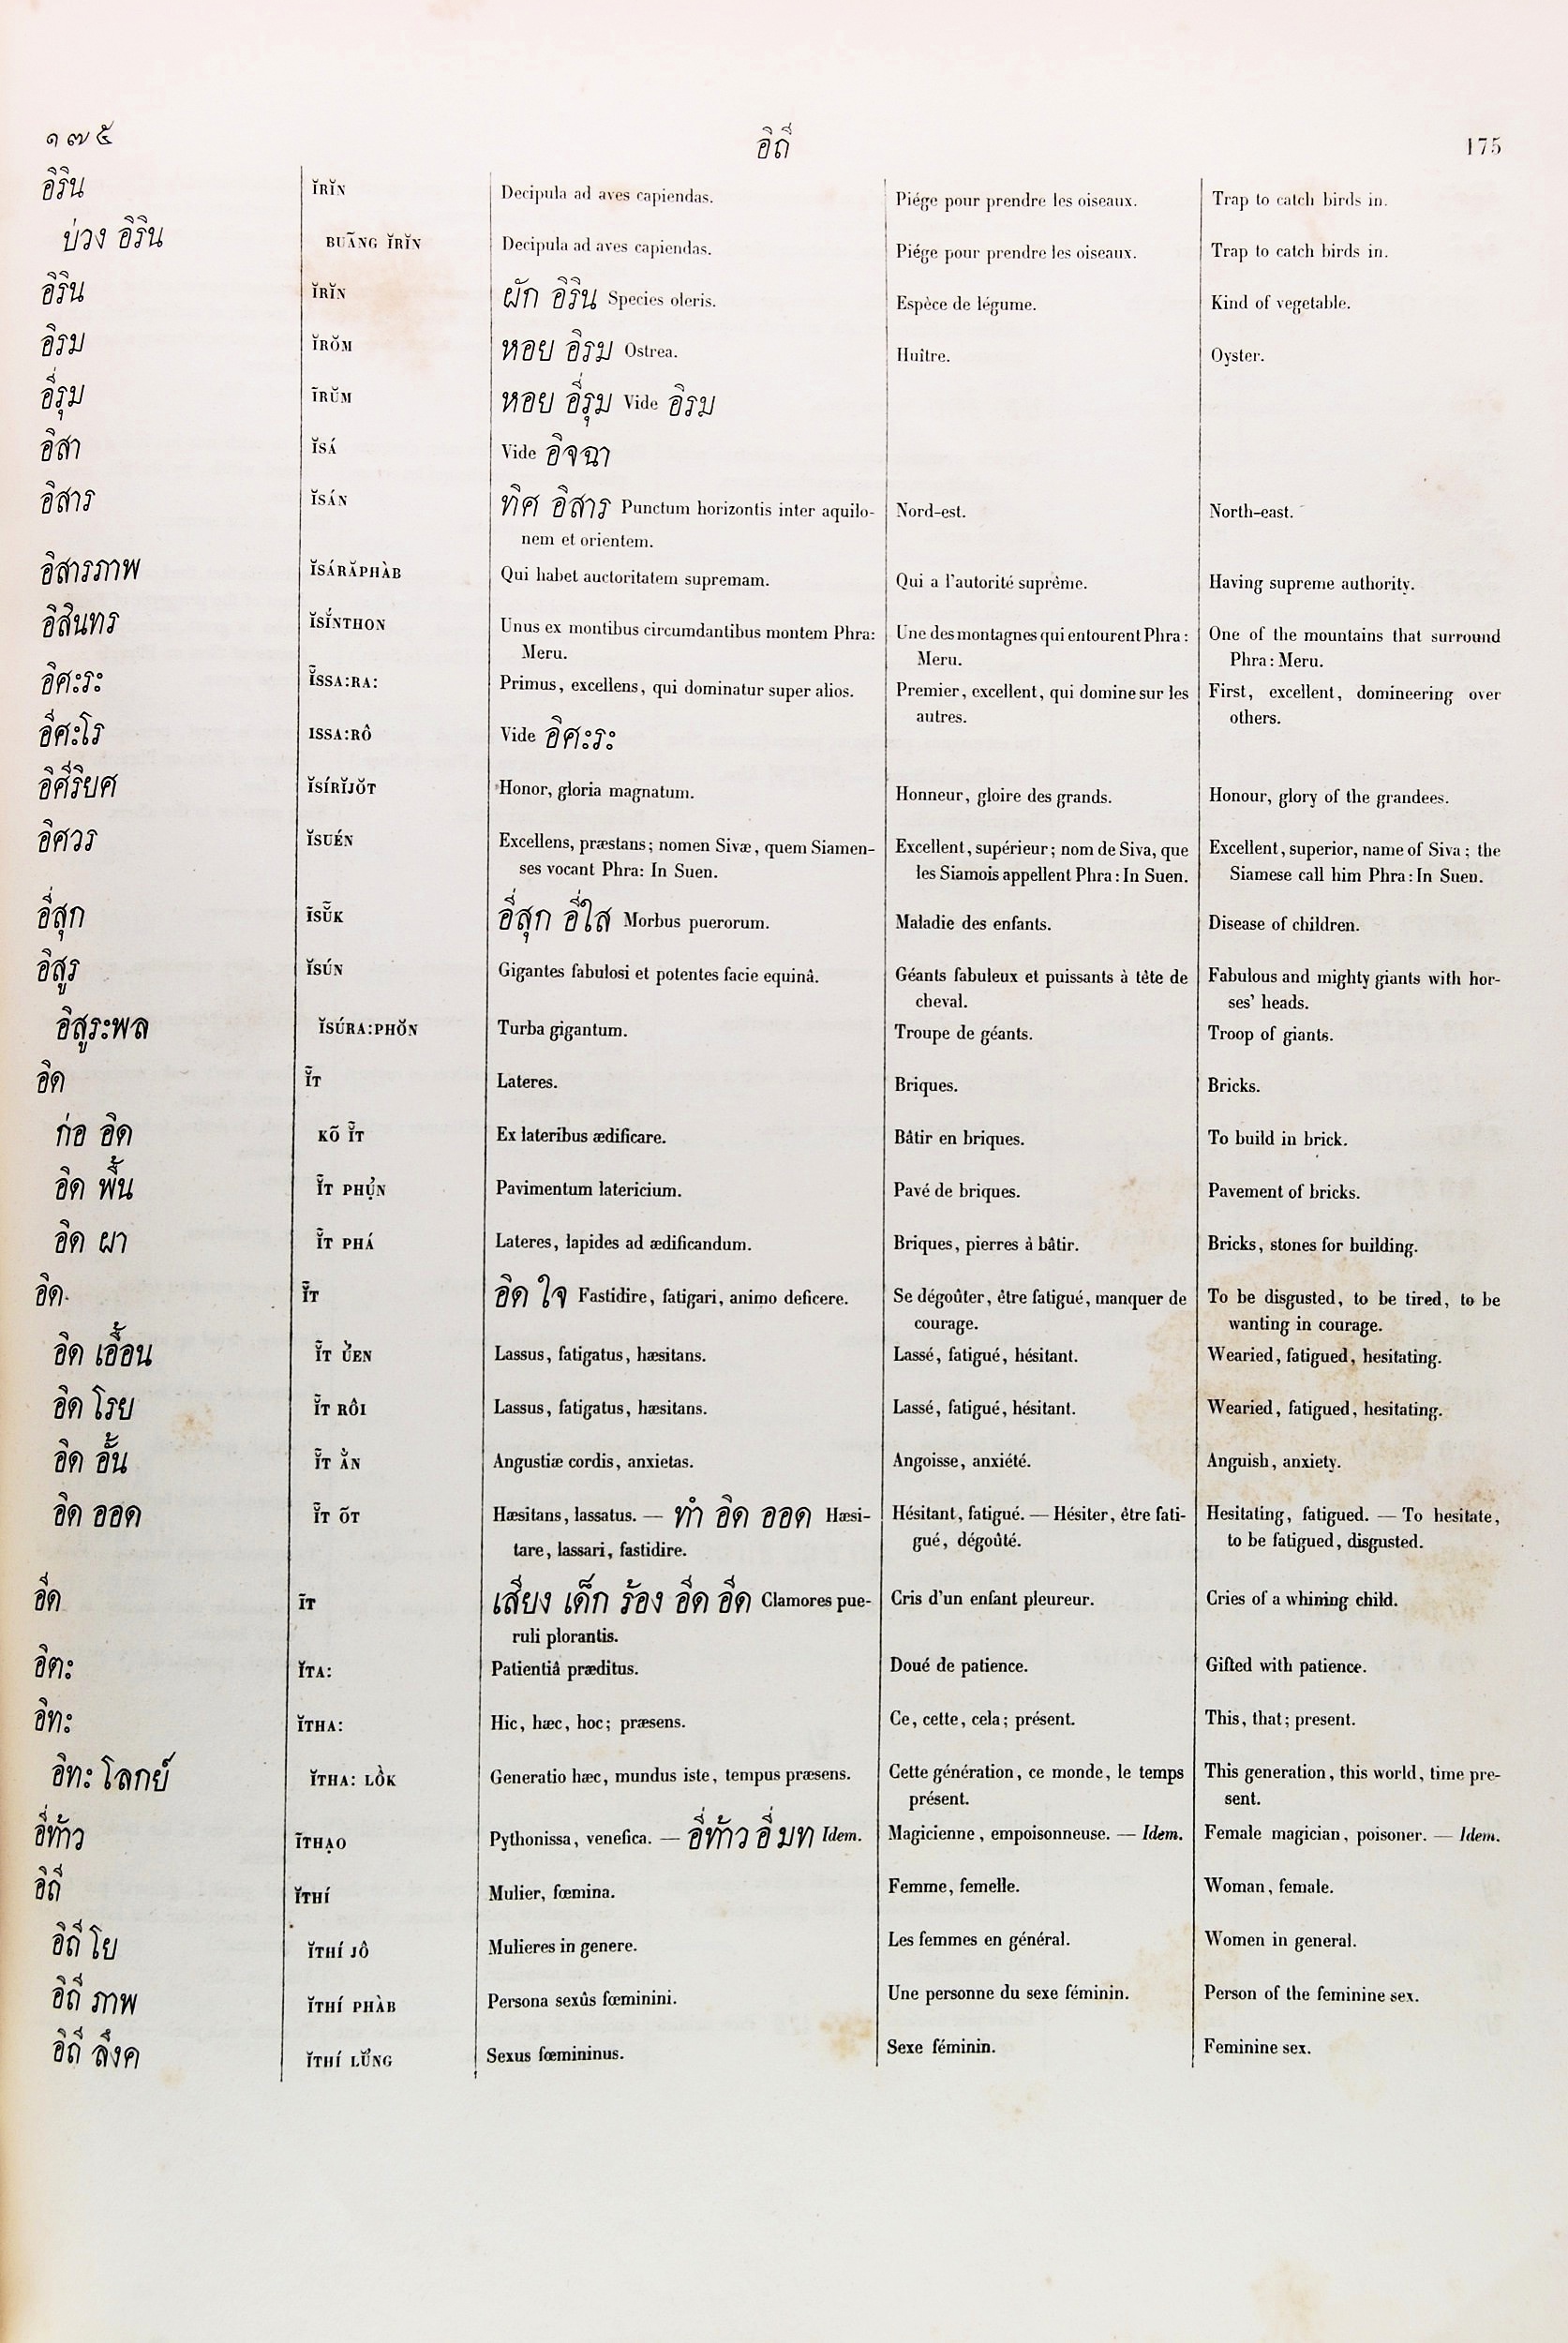 ๑๗๕ อิถี 175
อิริน ĬRĬN Decipula ad aves capiendas. Piége pour prendre les oiseaux. Trap to catch birds in.
บ่วง อิริน BUÃNG ĬRĬN Decipula ad aves capiendas. Piége pour prendre les oiseaux. Trap to catch birds in.
อิริน ĬRĬN ผัก อิริน Species oleris. Espèce de légume. Kind of vegetable.
อิรม ĬRŎM หอย อิรม Ostrea. Huître. Oyster.
อี่รุม ĨRŬM หอย อี่รุม Vide อิรม
อิสา ĬSÁ Vide อิจฉา
อิสาร ĬSÁN ทิศ อิสาร Punctum horizontis inter aquilo- Nord-est. North-east.
nem et orientem.
อิสารภาพ ĬSÁRĂPHÀB Qui habet auctoritatem supremam. Qui a l'autorité suprême. Having supreme authority.
อิสินทร ĬSĬ́NTHON Unus ex montibus circumdantibus montem Phra: Une des montagnes qui entourent Phra: One of the mountains that surround
Meru. Meru. Phra: Meru.
อิศะระ ĬSSA:RA: Primus, excellens, qui dominatur super alios. Premier, excellent, qui domine sur les First, excellent, domineering over
autres. others.
อีศะโร ISSA:RÔ Vide อิศะระ
อิศีริยศ ĬSÍRĬJŎT Honor, gloria magnatum. Honneur, gloire des grands. Honour, glory of the grandees.
อิศวร ĬSUÉN Excellens, præstans; nomen Sivæ, quem Siamen- Excellent, supérieur; nom de Siva, que Excellent, superior, name of Siva; the
ses vocant Phra: In Suen. les Siamois appellent Phra: In Suen. Siamese call him Phra: In Suen.
อี่สุก ĨSŬ̃K อี่สุก อี่ใส Morbus puerorum. Maladie des enfants. Disease of children.
อิสูร ĬSÚN Gigantes fabulosi et potentes facie equinâ. Géants fabuleux et puissants à tête de Fabulous and mighty giants with hor-
cheval. ses' heads.
อิสูระพล ĬSÚRA:PHŎN Turba gigantum. Troupe de géants. Troop of giants.
อิด Ĭ̃T Lateres. Briques. Bricks.
ก่อ อิด KÕ Ĭ̃T Ex lateribus ædificare. Bâtir en briques. To build in brick.
อิด พื้น Ĭ̃T PHỤ̉N Pavimentum latericium. Pavé de briques. Pavement of bricks.
อิด ผา Ĭ̃T PHÁ Lateres, lapides ad ædificandum. Briques, pierres à bâtir. Bricks, stones for building.
อิด Ĭ̃T อิด ใจ Fastidire, fatigari, animo deficere. Se dégoûter, être fatigué, manquer de To be disgusted, to be tired, to be
courage. wanting in courage.
อิด เอื้อน Ĭ̃T ỪEN Lassus, fatigatus, hæsitans. Lassé, fatigué, hésitant. Wearied, fatigued, hesitating.
อิด โรย Ĭ̃T RÔI Lassus, fatigatus, hæsitans. Lassé, fatigué, hésitant. Wearied, fatigued, hesitating.
อิด อั้น Ĭ̃T ẰN Angustiæ cordis, anxietas. Angoisse, anxiété. Anguish, anxiety.
อิด ออด Ĭ̃T ÕT Hæsitans, lassatus. — ทำ อิด ออด Hæsi- Hésitant, fatigué. — Hésiter, être fati- Hesitating, fatigued. — To hesitate,
tare, lassari, fastidire. gué, dégoûté. to be fatigued, disgusted.
อีด ĨT เสียง เด็ก ร้อง อีด อีด Clamores pue- Cris d'un enfant pleureur. Cries of a whining child.
ruli plorantis.
อิตะ ĬTA: Patientiâ præditus. Doué de patience. Gifted with patience.
อิทะ ĬTHA: Hic, hæc, hoc; præsens. Ce, cette, cela; présent. This, that; present.
อิทะ โลกย์ ĬTHA: LỒK Generatio hæc, mundus iste, tempus præsens. Cette génération, ce monde, le temps This generation, this world, time pre-
présent. sent.
อี่ท้าว ĨTHẠO Pythonissa, venefica. — อี่ท้าว อี่ มท Idem. Magicienne, empoisonneuse. — Idem. Female magician, poisoner. — Idem.
อิถี ĬTHÍ Mulier, fœmina. Femme, femelle. Woman, female.
อิถี โย ĬTHÍ JÔ Mulieres in genere. Les femmes en général. Women in general.
อิถี ภาพ ĬTHÍ PHÀB Persona sexûs fœminini. Une personne du sexe féminin. Person of the feminine sex.
อิถี ลึงค ĬTHÍ LỬNG Sexus fœmininus. Sexe féminin. Feminine sex.